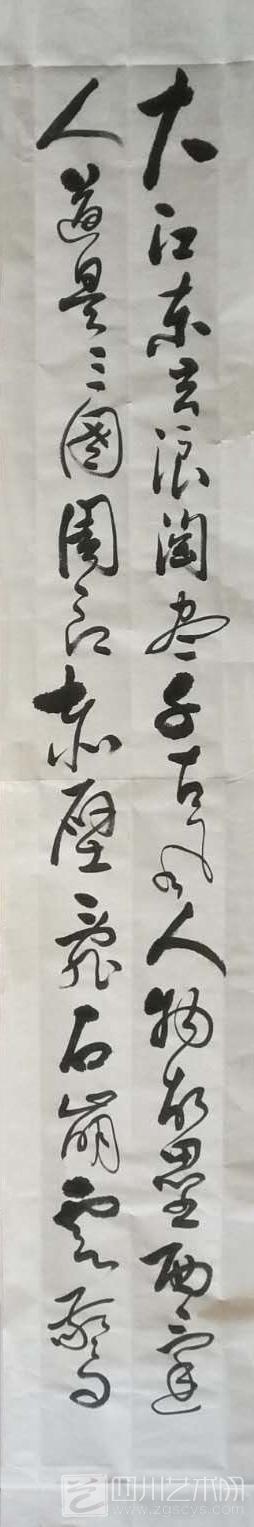 大江东去浪淘尽千古风人物故垒西邊
人道是三國周郎赤壁亂石崩雲驚
四川艺术网
www.zgscys.com